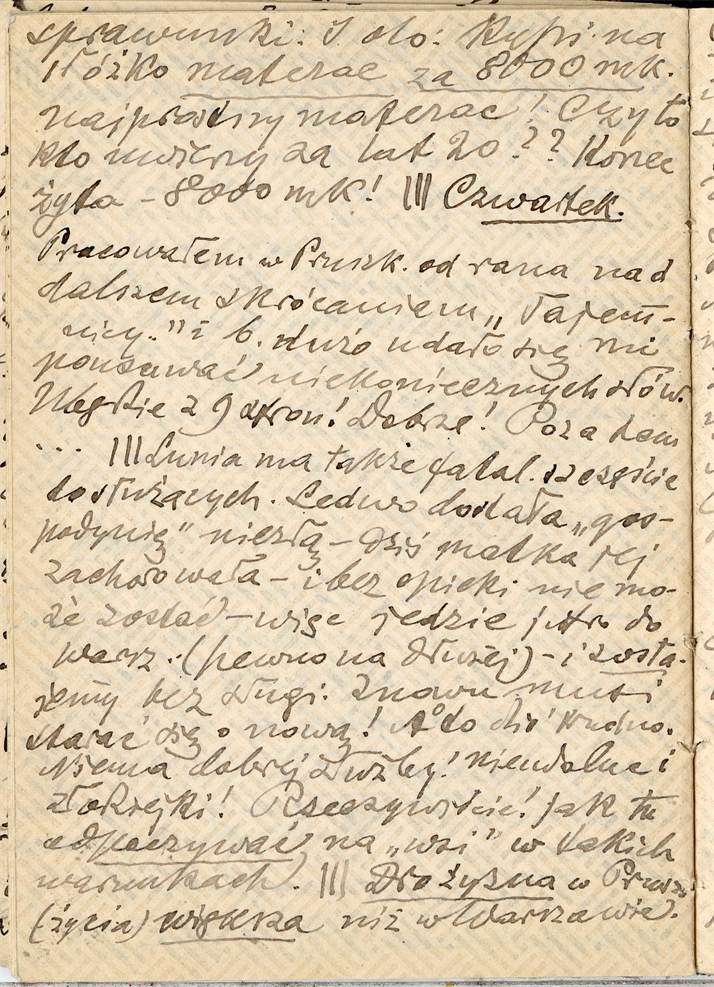 sprawunki: I oto: Kupś. na
łóżko materac za 8000 mk.
najprostszy materac! Czy to
kto uwierzy za lat 20?? Korzec
żyta – 8000 mk! ||| Czwartek.
Pracowałem w Pruszk. od rana nad
dalszem skrócaniem „Tajem-
nicy." i b. dużo udało się mi
pousuwać niekoniecznych słów.
Ubędzie z 9 stron! Dobrze! Poza tem
... ||| Lunia ma także fatal. szczęście
do służących. Ledwo dostała „gos-
podynię" niezłą – dziś matka jej
zachorowała – i bez opieki nie mo-
że zostać – więc jedzie jutro do
Warsz. (pewno na dłużej) – i zosta-
jemy bez sługi. Znowu musi
starać się o nową! A to dziś trudno.
Niema dobrej służby! niedolne i
złodziejki! Rzeczywiście! jak tu
odpoczywać na „wsi" w takich
warunkach. ||| Drożyzna w Prusz.
(życia) większa niż w Warszawie.